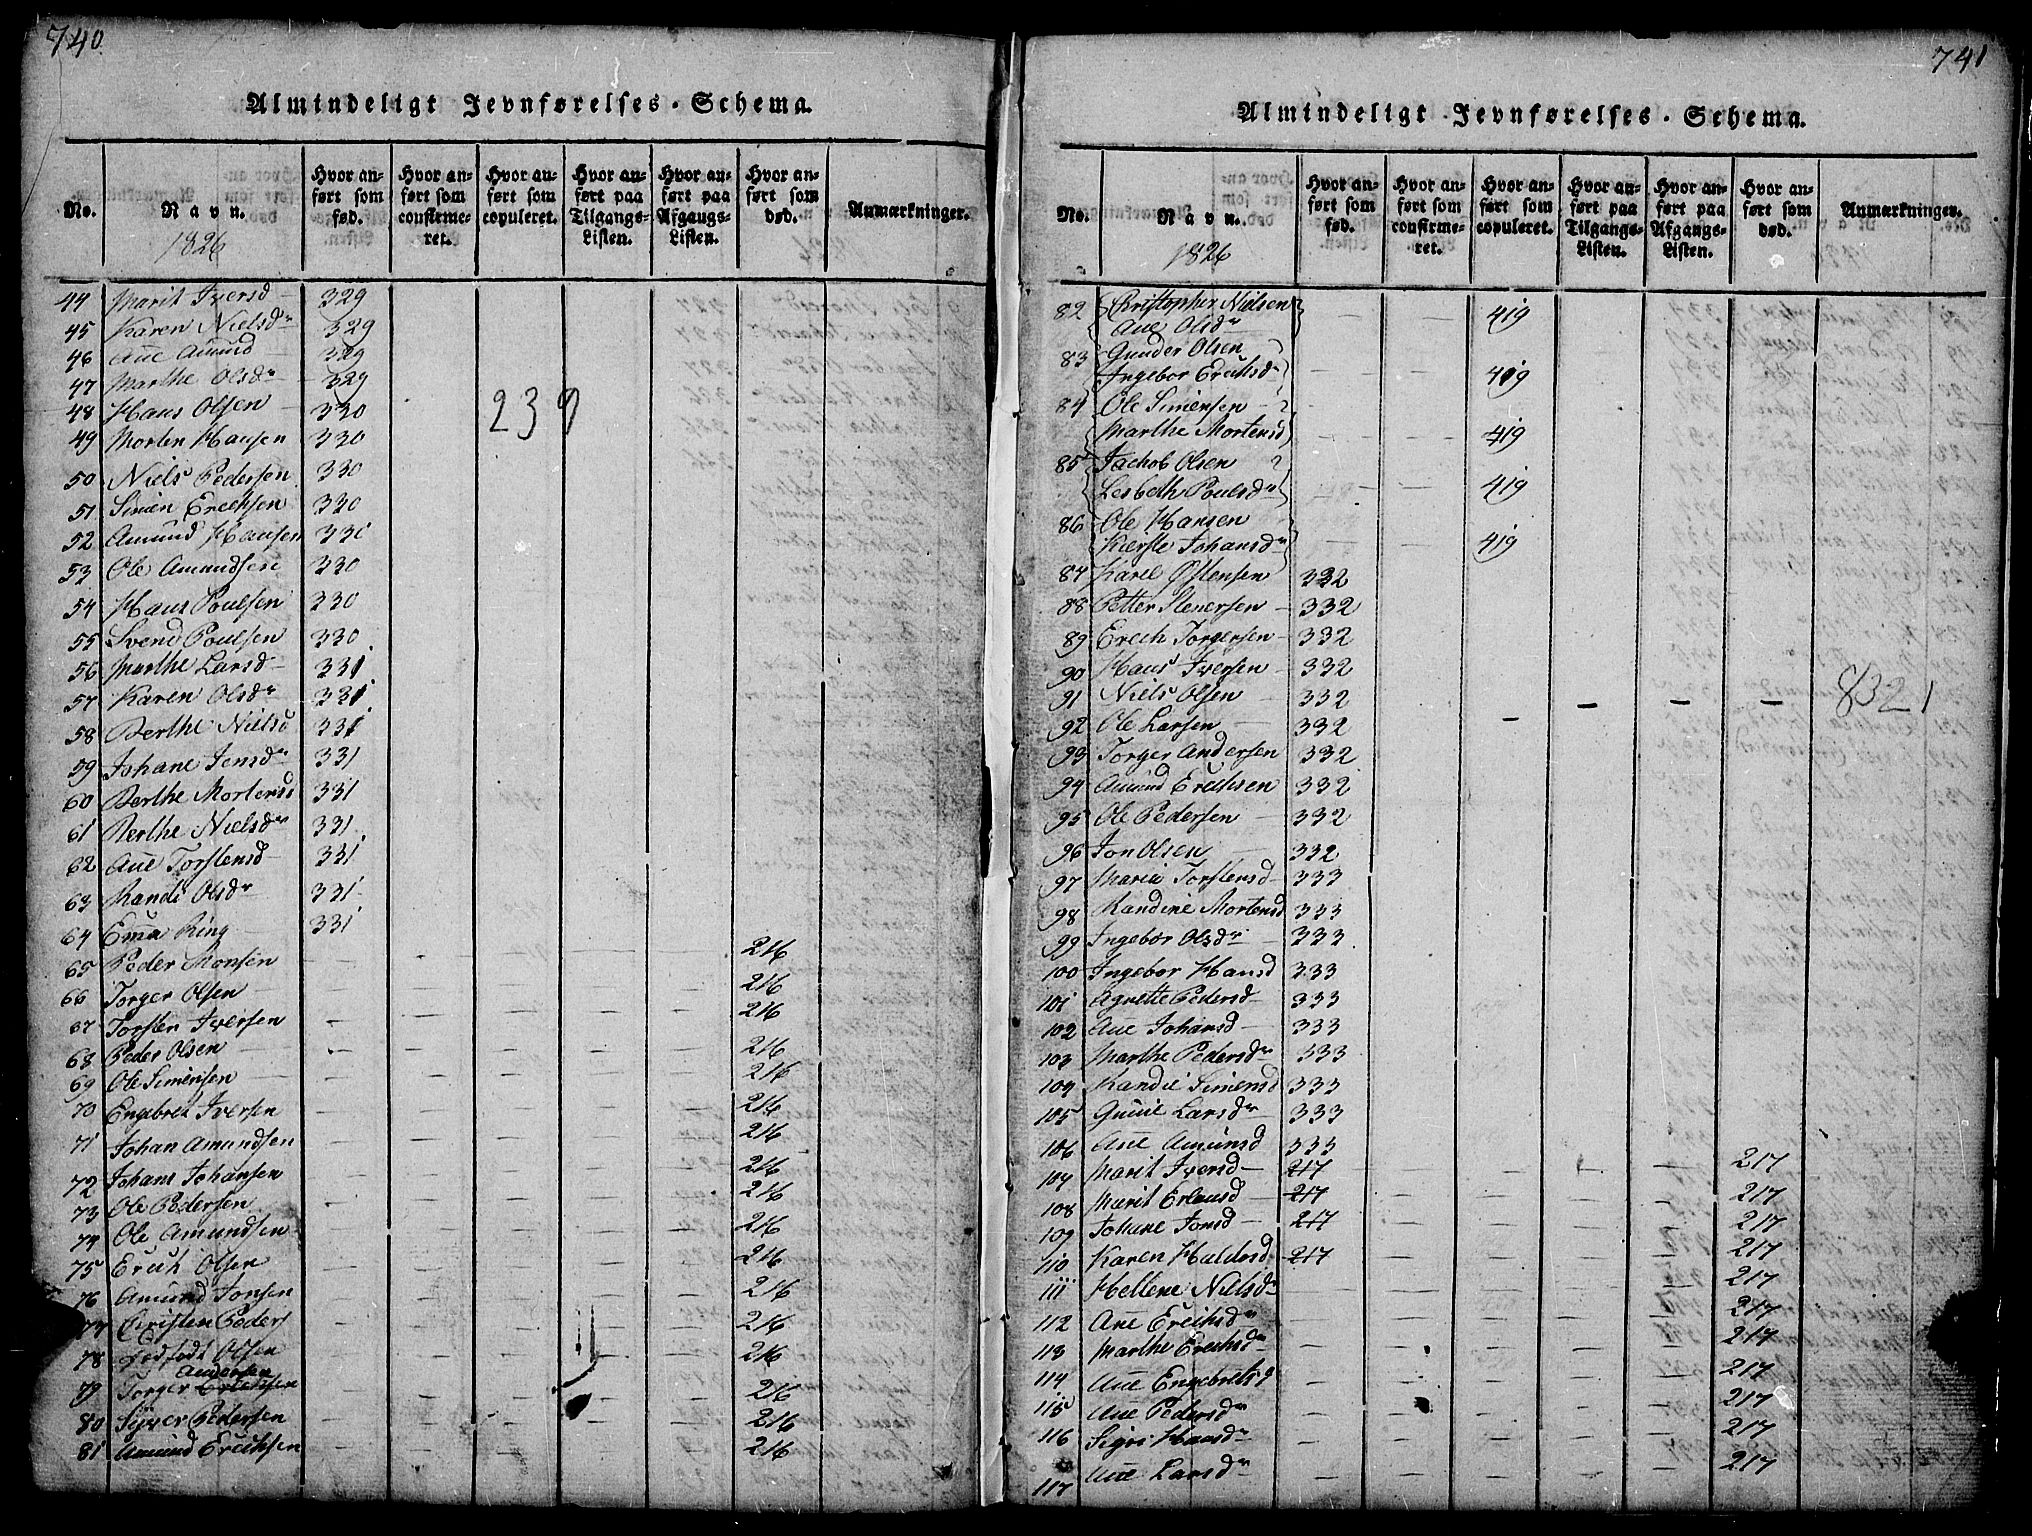 740
Almindeligt Jevnførelses-Schema.
No.
Navn.
Hvor anført som fød.
Hvor anført som confirmeret.
Hvor anført som copuleret.
Hvor anført paa Tilgangs-Listen.
Hvor anført paa Afgangs-Listen.
Hvor anført som død.
Anmærkninger.
1826
44 Marit Iversd — 329
45 Karen Nielsdr 329
46 Ane Amund — 329
47 Marthe Olsdr — 329
48 Hans Olsen — 330 239
49 Morten Hansen 330
50 Niels Pedersen 330
51 Simen Erichsen 330
52 Amund Hansen 330
53 Ole Amundsen 330
54 Hans Poulsen 330
55 Svend Poulsen 330
56 Marthe Larsd — 331
57 Karen Olsdr 331
58 Berthe Nielsd 331
59 Johane Jensdr 331
60 Berthe Mortensd 331
61 Berthe Nielsdr 331
62 Ane Torstensd — 331
63 Randi Olsdr 331
64 Ema Ring — 331
65 Peder Monsen — — — — — 216
66 Torger Olsen — — — — — — 216
67 Torsten Iversen — — — — — 216
68 Peder Olsen — — — — — — 216
69 Ole Simensen — — — — — — 216
70 Engebret Iversen — — — — — 216
71 Johan Amundsen — — — — — 216
72 Johans Johansen — — — — — 216
73 Ole Pedersen — — — — — 216
74 Ole Amundsen — — — — — 216
75 Erich Olsen — — — — — 216
76 Amund Jonsen — — — — — 216
77 Christen Peders — — — — — 216
78 Dødfødt Olsen — — — — — 216
Andersen
79 Torger Erichsen — — — — — 216
80 Syver Pedersen — — — — — 216
81 Amund Erichsen — — — — — 216
741
Almindeligt Jevnførelses-Schema.
No.
Navn.
Hvor anført som fød.
Hvor anført som confirmeret.
Hvor anført som copuleret.
Hvor anført paa Tilgangs-Listen.
Hvor anført paa Afgangs-Listen.
Hvor anført som død.
Anmærkninger.
1826
82 Christopher Nielsen
Ane Olsdr — — 419
83 Gunder Olsen
Ingebor Erichsdr — — 419
84 Ole Simensen —
Marthe Mortensd — — 419
85 Jachob Olsen
Lesbeth Poulsdr — — 419
86 Ole Hansen
Kierste Johansdr — — 419
87 Karel Østensen 332
88 Petter Stenersen — 332
89 Erich Torgersen — 332
90 Hans Iversen — 332
91 Niels Olsen — 332 — — — — 8321
92 Ole Larsen — 332
93 Torger Andersen 332
94 Amund Erichsen 332
95 Ole Pedersen — 332
96 Jon Olsen — 332
97 Maria Torstensd — 333
98 Randine Mortensd 333
99 Ingebor Olsdr — 333
100 Ingebor Hansd 333
101 Agnette Pedersd — 333
102 Ane Johansd — 333
103 Marthe Pedersdr 333
104 Randie Simensd 333
105 Gunil Larsdr 333
106 Ane Amunsd 333
107 Marit Iversd — 217 — — — — 217
108 Marit Erlansd — 217 — — — — 217
109 Johane Jonsd — 217 — — — — 217
110 Karen Haldosd 217 — — — — 217
111 Hellene Nielsdr — — — — — 217
112 Ane Erichsdr — — — — — 217
113 Marthe Erichsdr — — — — — 217
114 Ane Engebretsd — — — — — 217
115 Ane Pedersdr — — — — — 217
116 Sigri Hansdr — — — — — 217
117 Ane Larsdr — — — — — 217